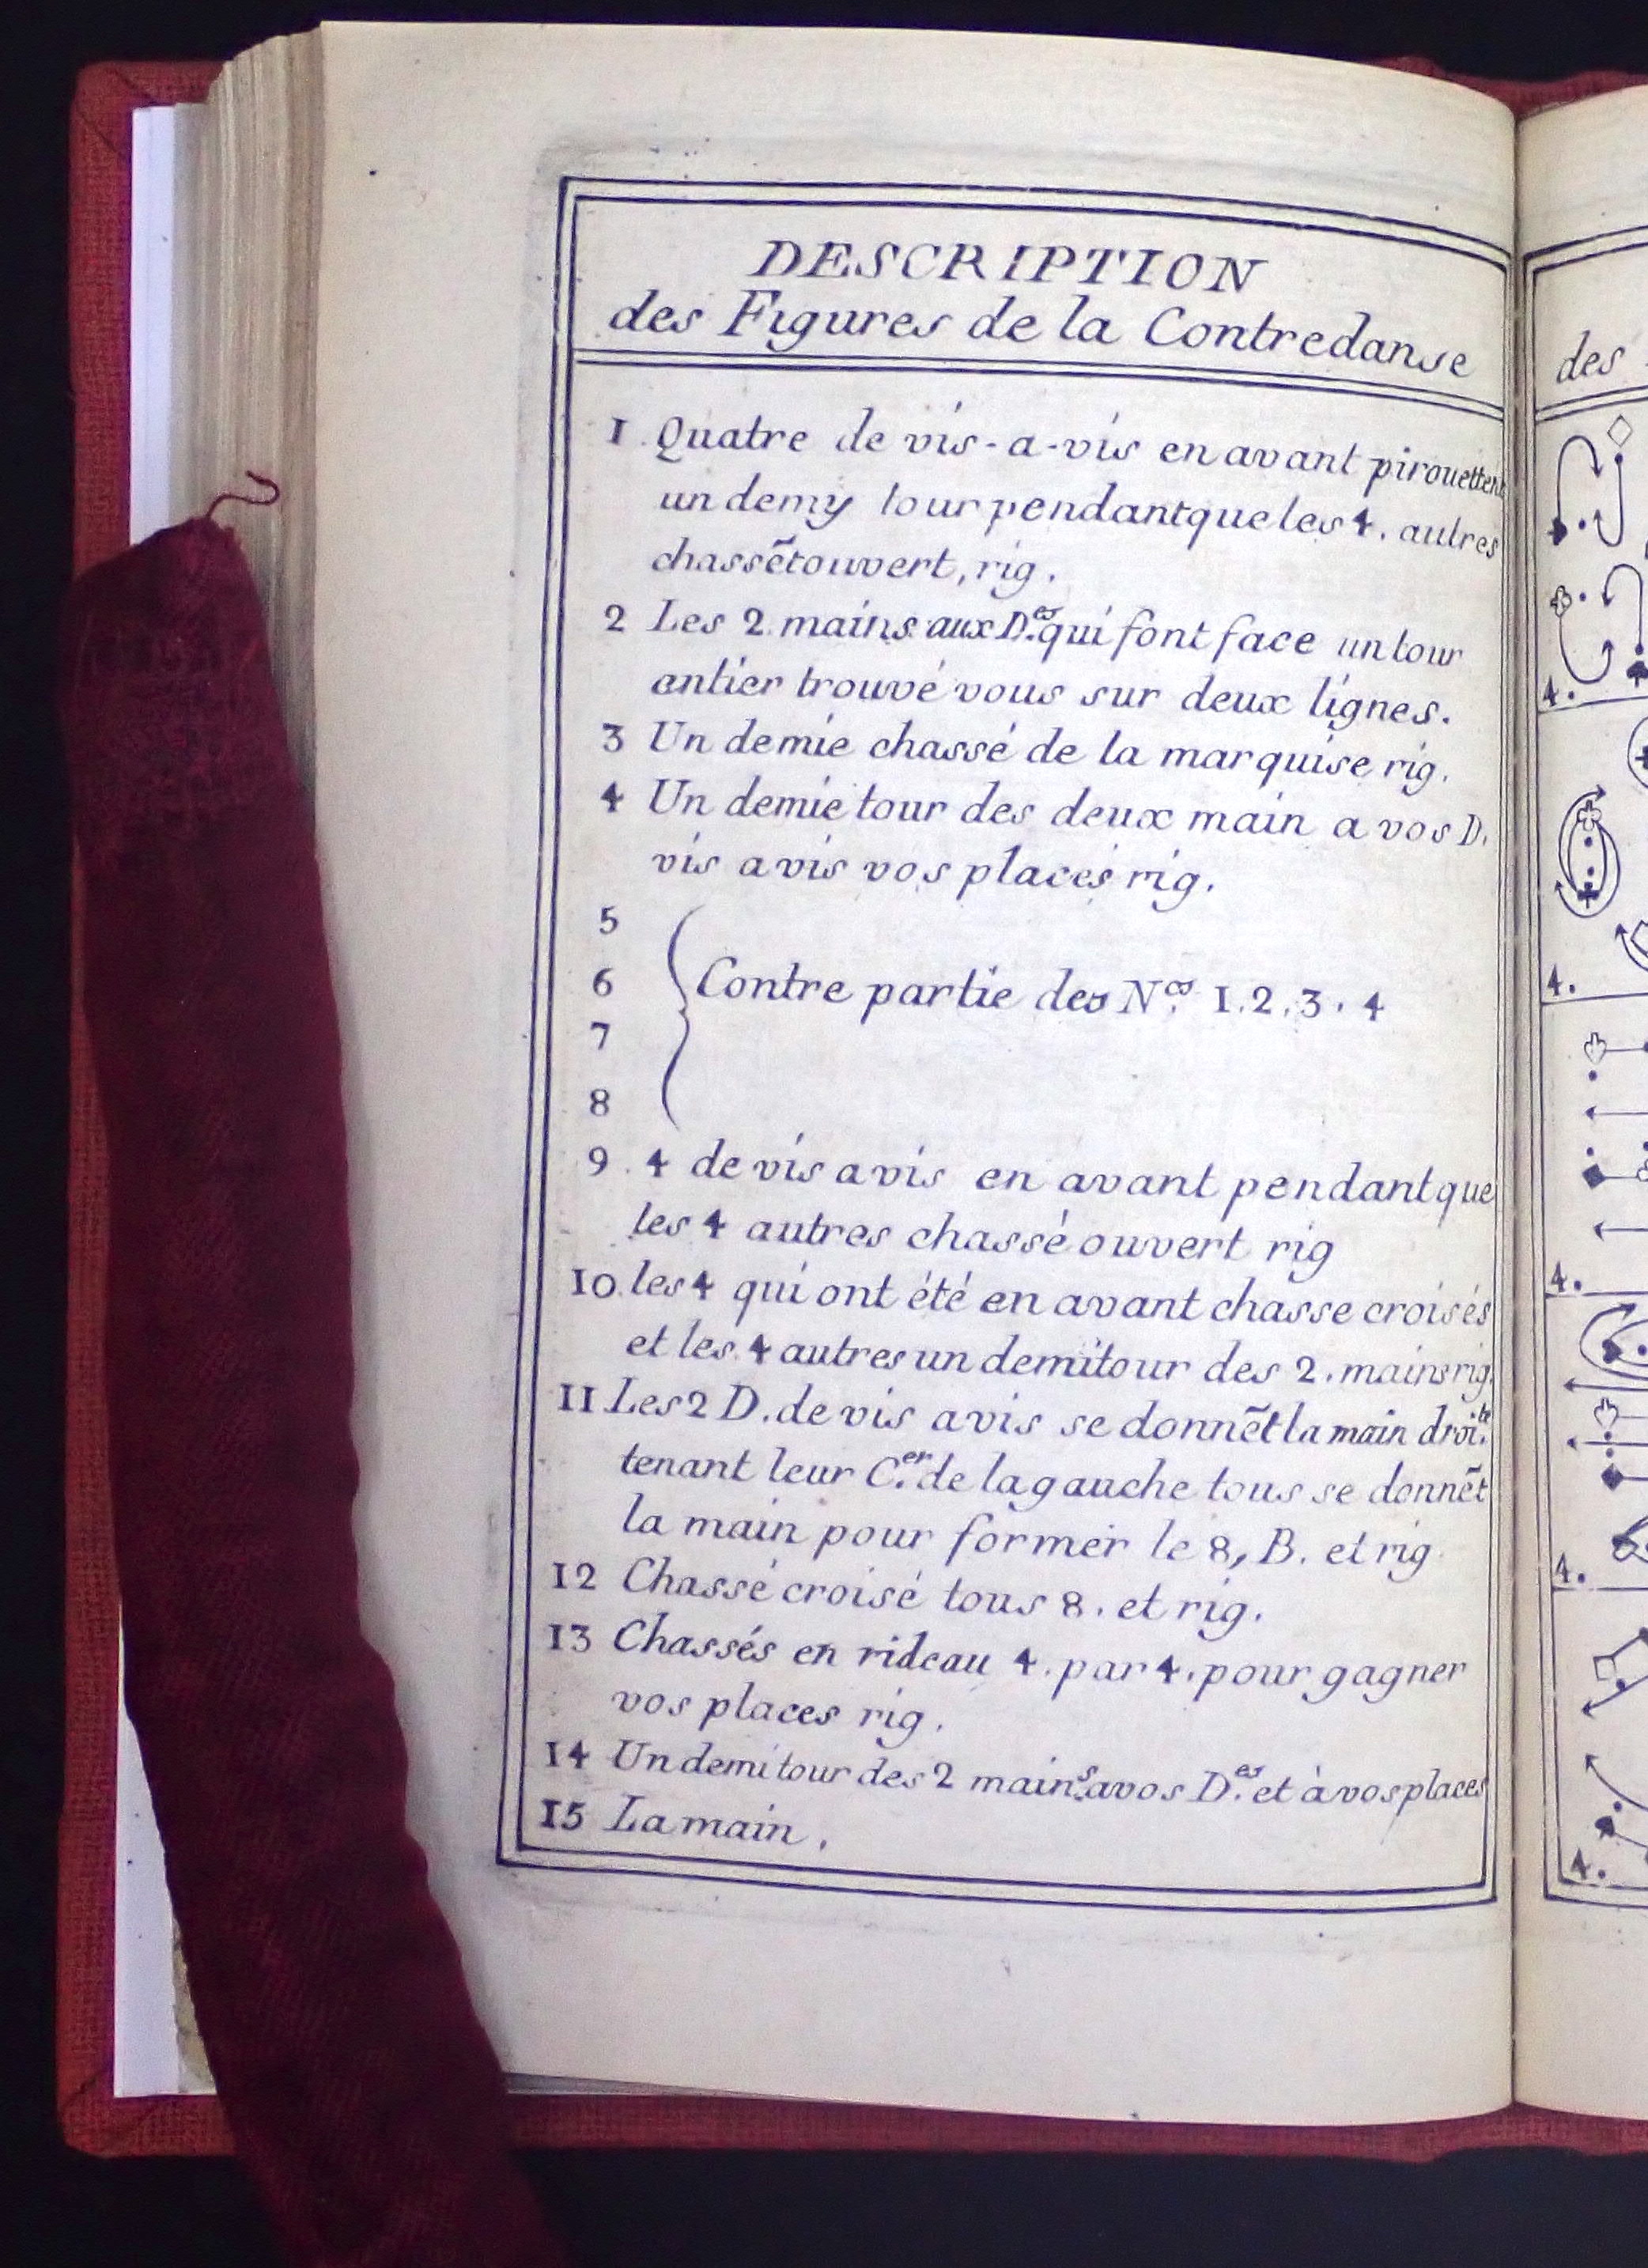 DESCRIPTION
des Figures de la Contredanse
1 Quatre de vis-a-vis en avant pirouettent
un demy tour pendant que les 4. autres
chassẽt ouvert, rig.
2 Les 2 mains aux D.es qui font face un tour
entier trouvé vous sur deux lignes.
3 Un demie chassé de la marquise rig.
4 Un demie tour des deux main a vos D.
vis a vis vos places rig.
5
6 Contre partie des N.os 1.2.3.4
7
8
9. 4 de vis a vis en avant pendant que
les 4 autres chassé ouvert rig
10. les 4 qui ont été en avant chasse croisés
et les 4 autres un demi tour des 2. mains rig.
11 Les 2 D. de vis avis se donnẽt la main droi.te
tenant leur C.er de la gauche tous se donnẽt
la main pour former le 8, B. et rig
12 Chassé croisé tous 8. et rig.
13 Chassés en rideau 4. par 4. pour gagner
vos places rig.
14 Un demi tour des 2 main.s a vos D.es et à vos places
15 La main.
des
4.
4.
4.
4.
4.